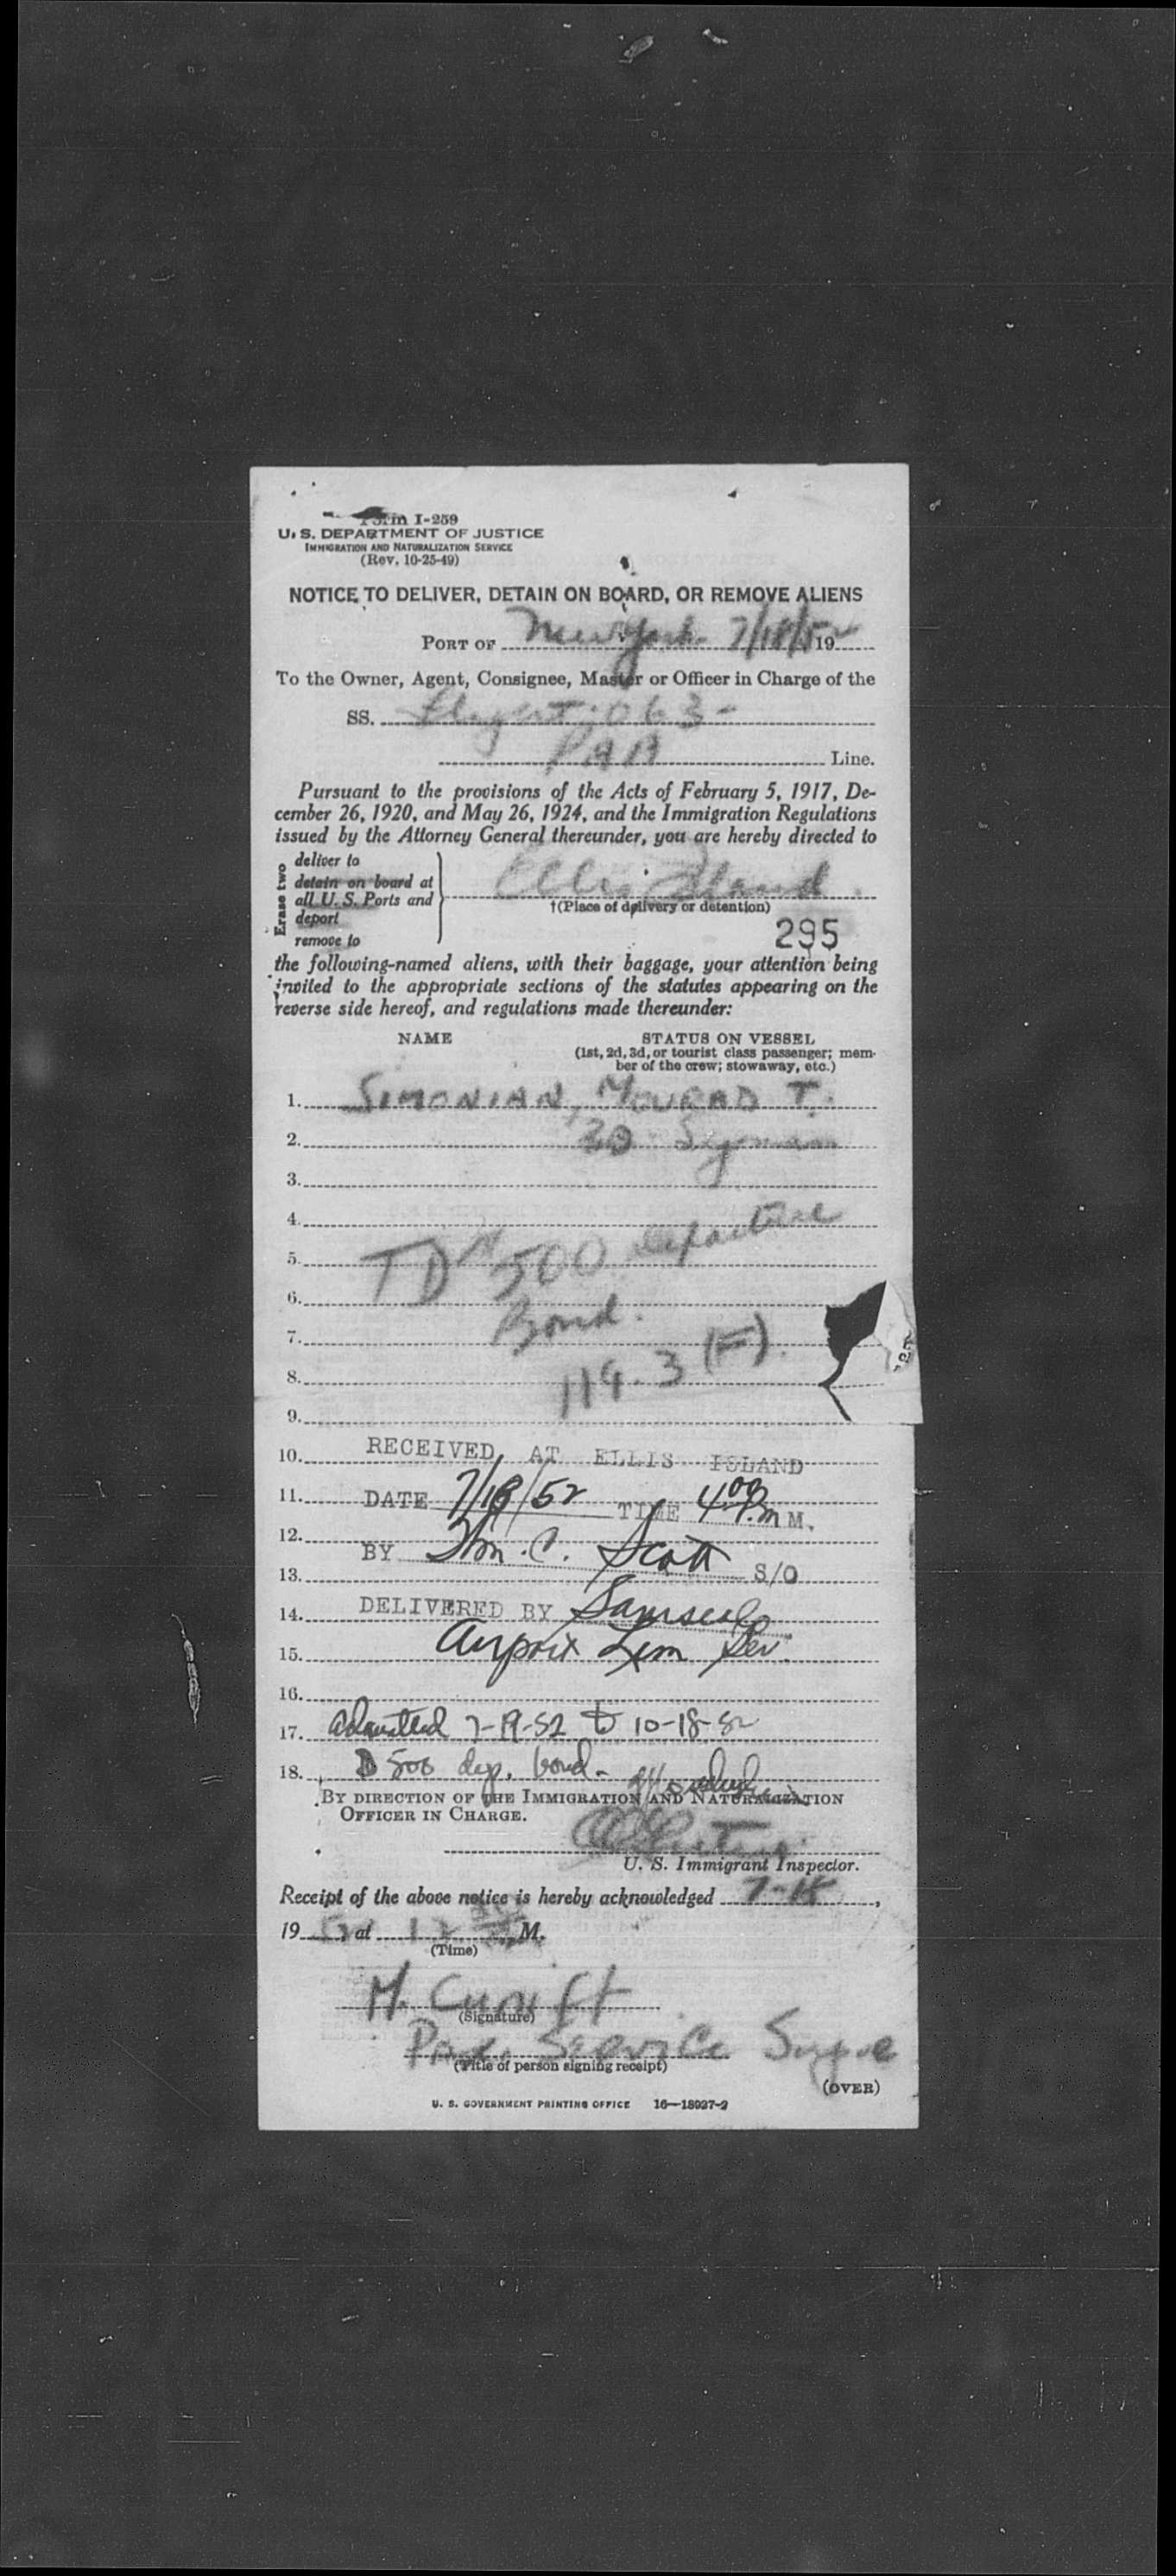 Form I-259
U. S. DEPARTMENT OF JUSTICE
IMMIGRATION AND NATURALIZATION SERVICE
(Rev. 10-25-49)
NOTICE TO DELIVER, DETAIN ON BOARD, OR REMOVE ALIENS
PORT OF New York 7/18/52 19
To the Owner, Agent, Consignee, Master or Officer in Charge of the
SS. 063-
PAA Line.
Pursuant to the provisions of the Acts of February 5, 1917, De-
cember 26, 1920, and May 26, 1924, and the Immigration Regulations
issued by the Attorney General thereunder, you are hereby directed to
Erase two
deliver to
detain on board at
all U. S. Ports and
deport
remove to
Ellis Island
†(Place of delivery or detention)
295
the following-named aliens, with their baggage, your attention being
invited to the appropriate sections of the statutes appearing on the
reverse side hereof, and regulations made thereunder:
NAME STATUS ON VESSEL
(1st, 2d, 3d, or tourist class passenger; mem-
ber of the crew; stowaway, etc.)
1. SIMONIAN, MOURAD T.
2.
3.
4. departure
5. TD 500
6.
7. Bond.
8. 119.3 (F).
9.
10. RECEIVED AT ELLIS ISLAND
11. DATE 7/18/52 TIME 4 00 P.m M.
12.
BY Wm. C. Scott S/O
13.
14. DELIVERED BY
15. Airport Lim Ser.
16.
17. admitted 7-19-52 to 10-18-52
18. 500 dep. bond-
BY DIRECTION OF THE IMMIGRATION AND NATURALIZATION
OFFICER IN CHARGE.
U. S. Immigrant Inspector.
Receipt of the above notice is hereby acknowledged 7-18,
19 52 at 12 M.
(Time)
M.
(Signature)
Service
(Title of person signing receipt)
(OVER)
U. S. GOVERNMENT PRINTING OFFICE 16—18027-2